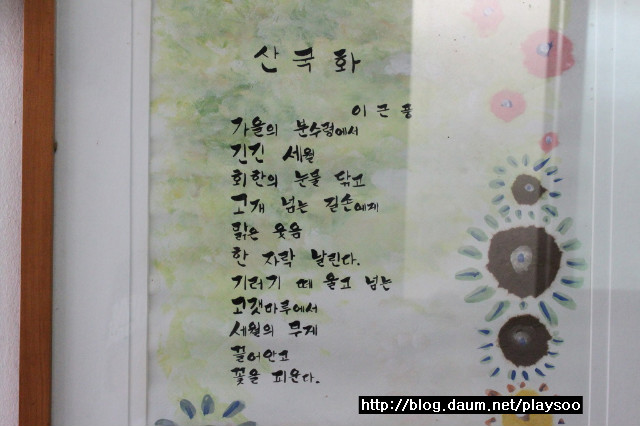 산국화
이근풍
가을의 분수령에서
긴긴 세월
회한의 눈물 닦고
고개 넘는 길손에게
맑은 웃음
한 자락 날린다.
기러기 떼 울고 넘는
고갯마루에서
세월의 무게
끌어안고
꽃을 피운다.
http://blog.daum.net/playsoo